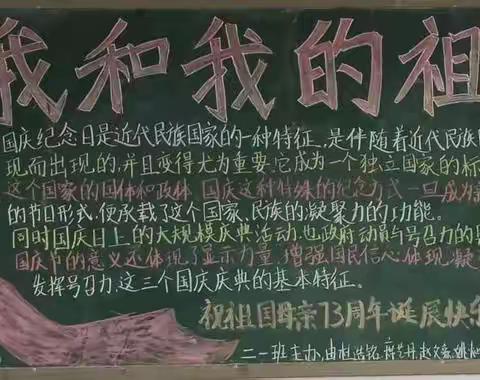 我和我的祖
国庆纪念日是近代民族国家的一种特征,是伴随着近代民族
现而出现的,并且变得尤为重要.它成为一个独立国家的标
这个国家的国体和政体.国庆这种特殊的纪念方式一旦成为
的节日形式,便承载了这个国家、民族的凝聚力的功能。
同时国庆日上的大规模庆典活动,也政府动员与号召力的
国庆节的意义还体现了显示力量,增强国民信心,体现凝
发挥号召力,这三个国庆庆典的基本特征。
祝祖国母亲73周年诞辰快乐
二一班主办,由杜